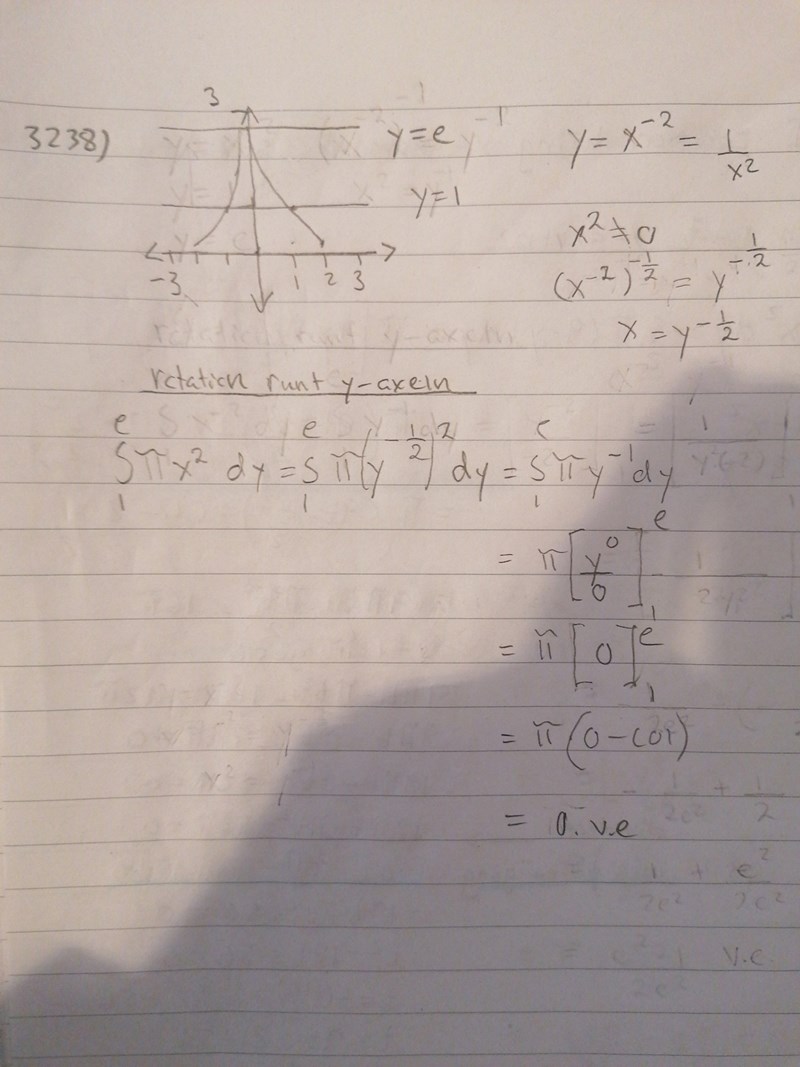 3238)
3
y=e
y=1
-3 1 2 3
y = x⁻² = 1/x²
x² ≠ 0
(x⁻²)^(-1/2) = y^(-1/2)
x = y^(-1/2)
rotation runt y-axeln
∫₁ᵉ πx² dy = ∫₁ᵉ π(y^(-1/2))² dy = ∫₁ᵉ πy⁻¹ dy
= π[y⁰/0]₁ᵉ
= π[0]₁ᵉ
= π(0-(0))
= 0. v.e